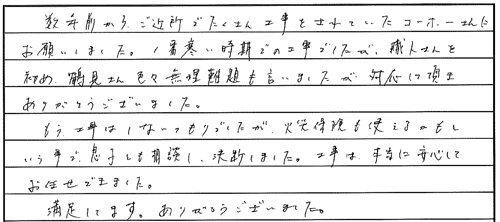 数年前から、ご近所でたくさん工事をされていたコーホーさんに
お願いしました。1番寒い時期での工事でしたが、職人さんを
初め、鶴見さん色々無理難題も言いましたが、対応して頂き
ありがとうございました。
もう、工事はしないつもりでしたが、火災保険も使えるかもと
いう事で、息子とも相談し、決断しました。工事は、本当に安心して
お任せできました。
満足してます。ありがとうございました。